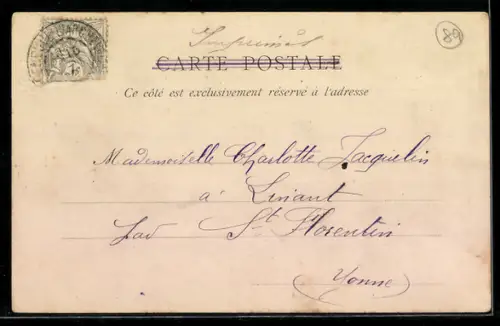 Imprimés
CARTE POSTALE
Ce côté est exclusivement réservé à l'adresse
Mademoiselle Charlotte Jacquelin
à Linant
par St Florentin
(Yonne)